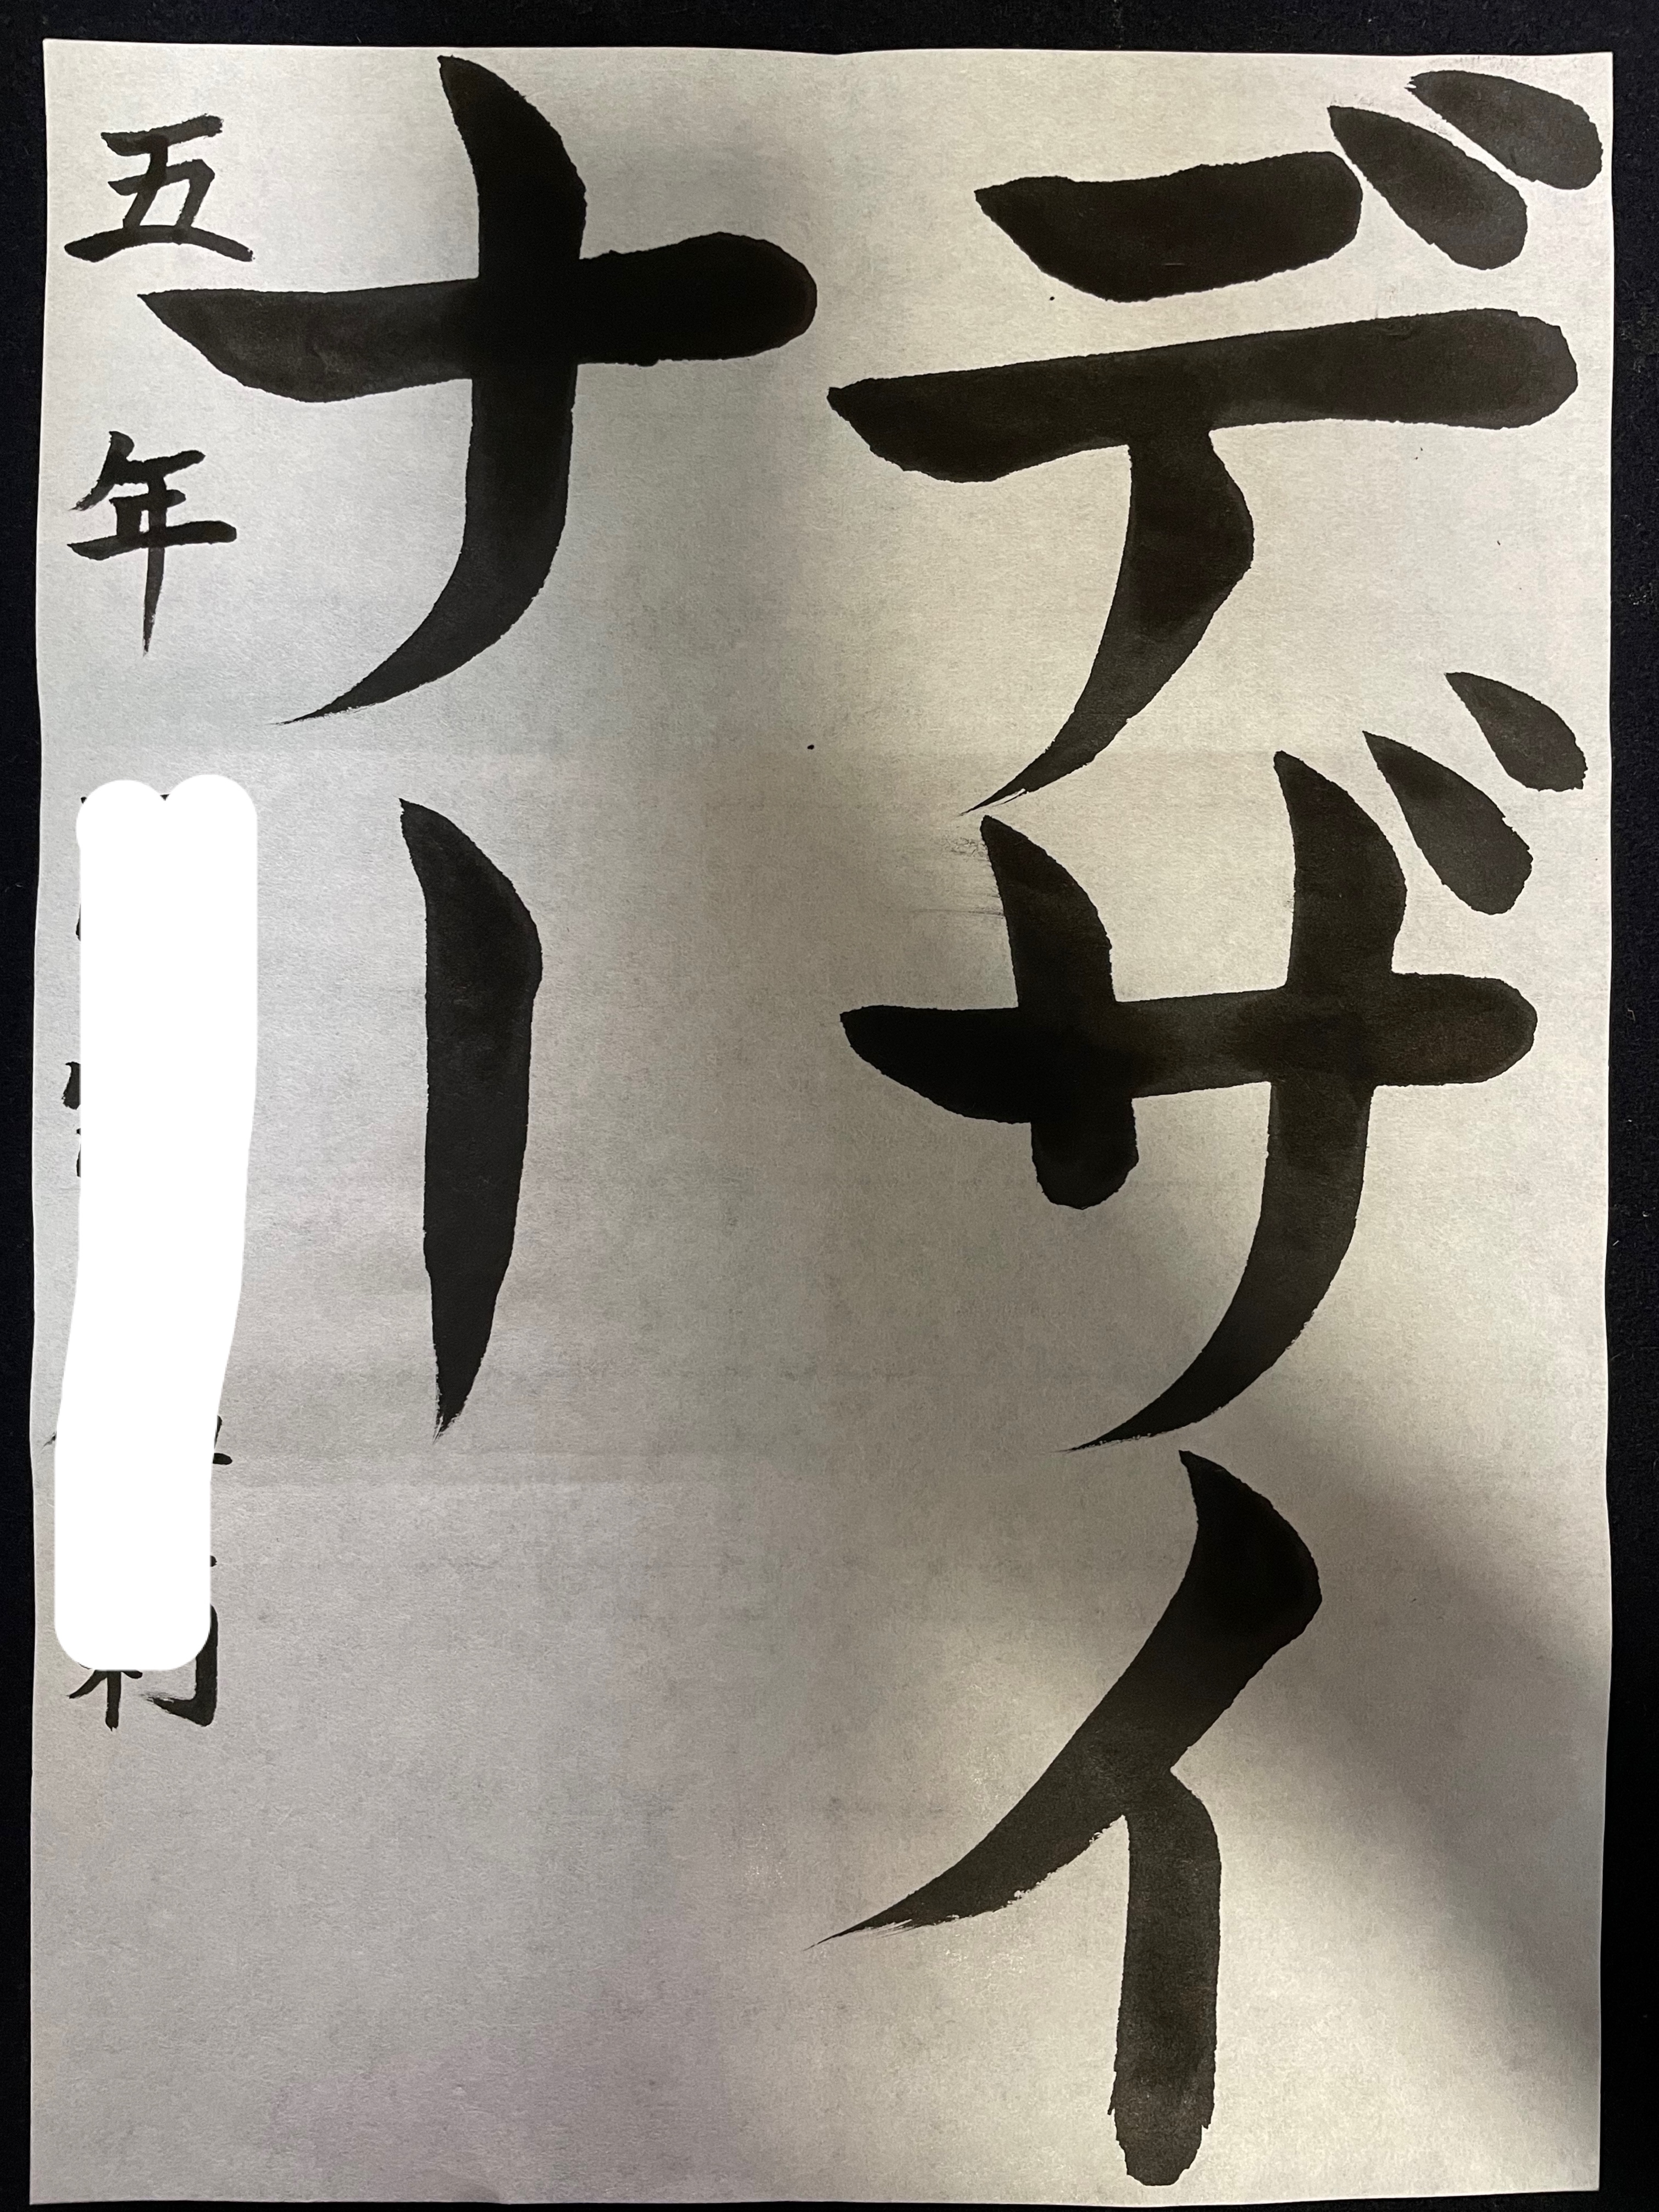 デザイ
ナー
五年